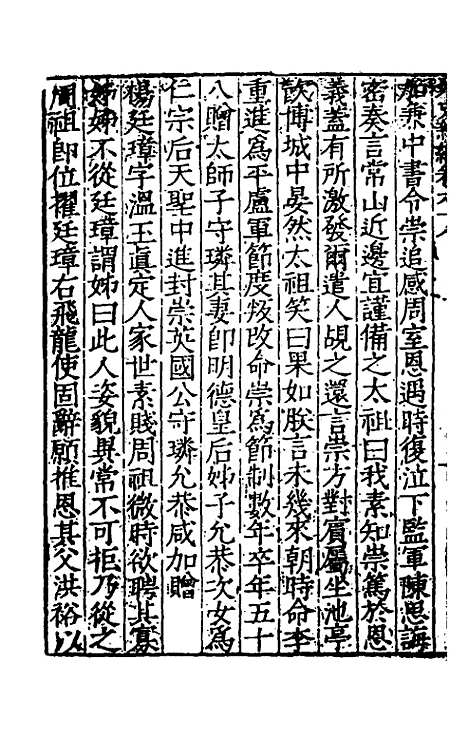 兼中書令崇追感周室恩遇時復泣下監軍陳思誨
密奏言常山近邊宜謹備之太祖曰我素知崇篤於恩
義蓋有所激發爾遣人覘之還言崇方對賓屬坐池亭
飲博城中晏然太祖笑曰果如朕言未幾來朝時命李
重進為平盧軍節度叛改命崇為節制數年卒年五十
八贈太師子守璘其妻即明德皇后姊子允恭次女為
仁宗后天聖中進封崇英國公守璘允恭咸加贈
楊廷璋字溫玉真定人家世素賤周祖微時欲聘其寡
姊姊不從廷璋謂姊曰此人姿貌異常不可拒乃從之
周祖即位擢廷璋右飛龍使固辭願推恩其父洪裕以